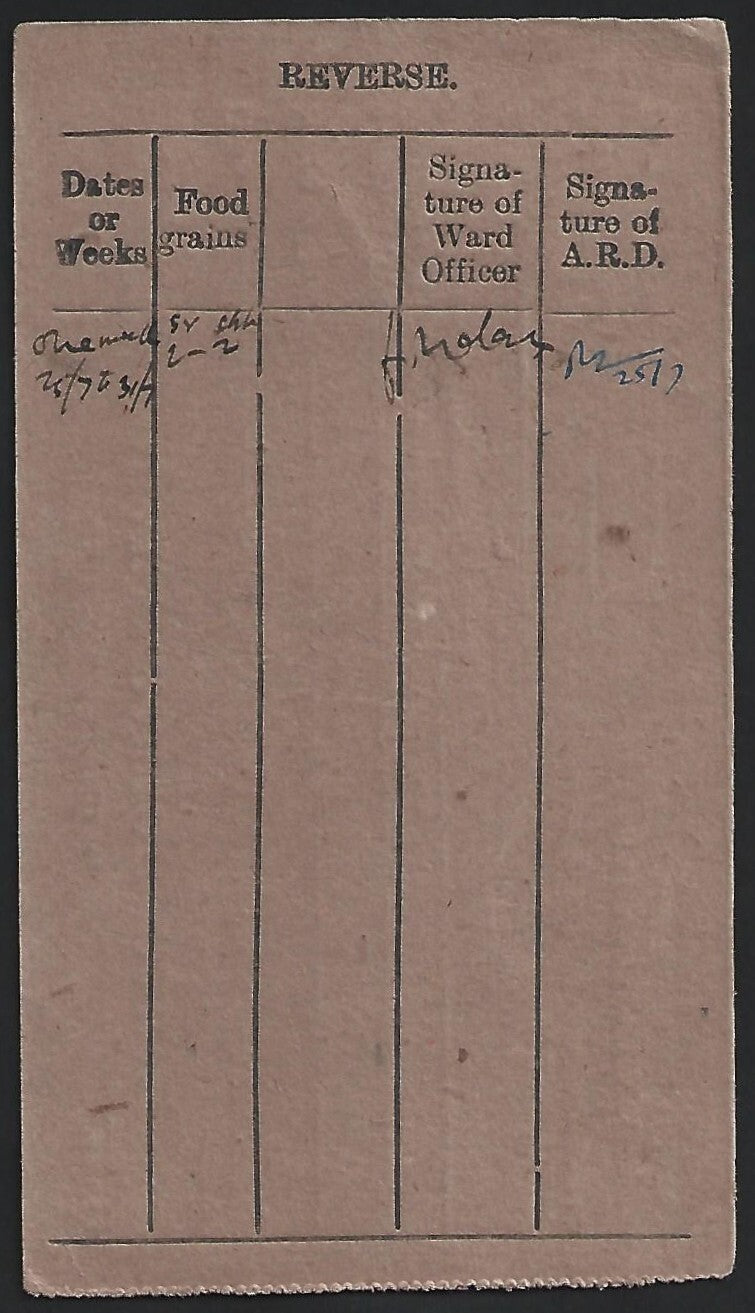 REVERSE.
Dates
or
Weeks
Food
grains
Signa-
ture of
Ward
Officer
Signa-
ture of
A.R.D.
One week
25/7 to 31/7
Sr Chh
2-2
25/7